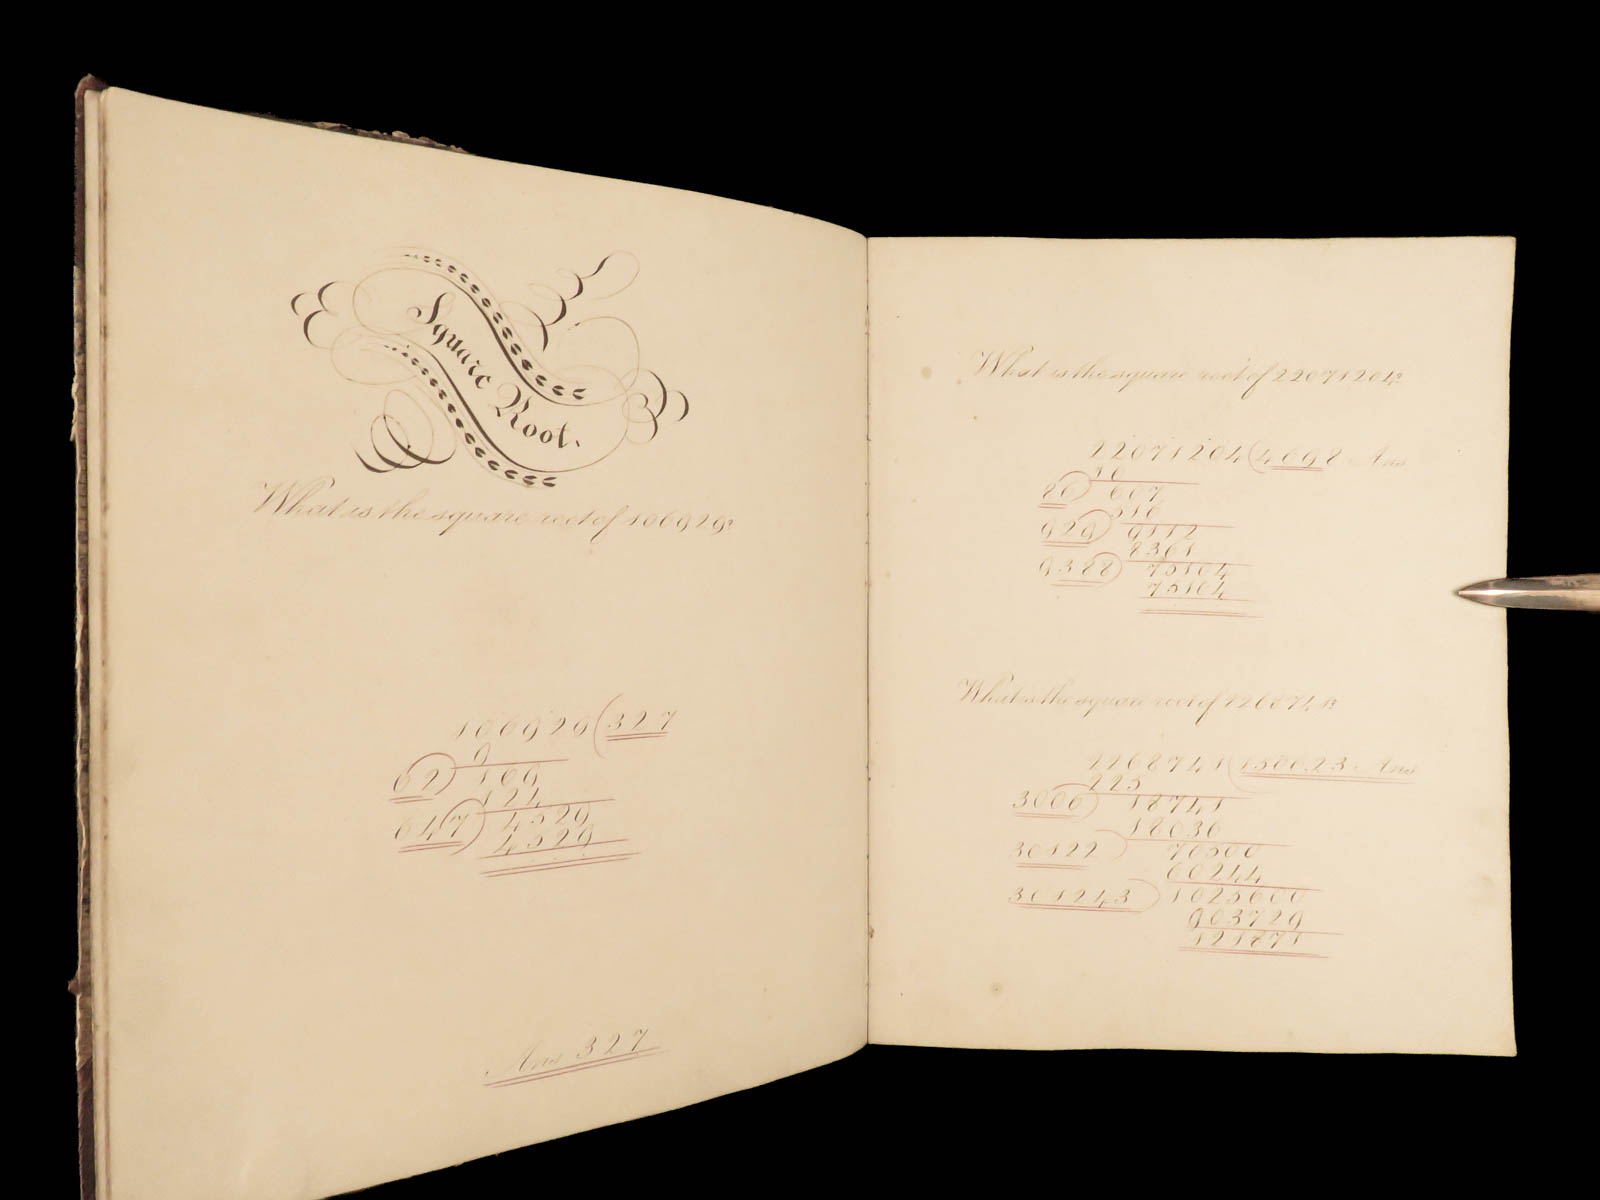 Square Root.
What is the square root of 106929?
106929(327
9
62) 169
124
647) 4529
4529
Ans 327
What is the square root of 22071204?
22071204(4698 Ans
16
86) 607
516
929) 9112
8361
9388) 75104
75104
What is the square root of 2268741?
2268741(1506.23 Ans
225
3006) 18741
18036
30122) 70500
60244
301243) 1025600
903729
121871